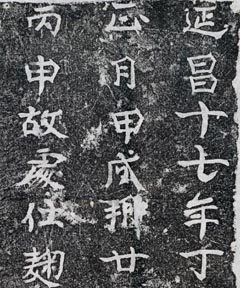 延昌十七年丁
正月甲戌朔廿
丙申故處仕麹